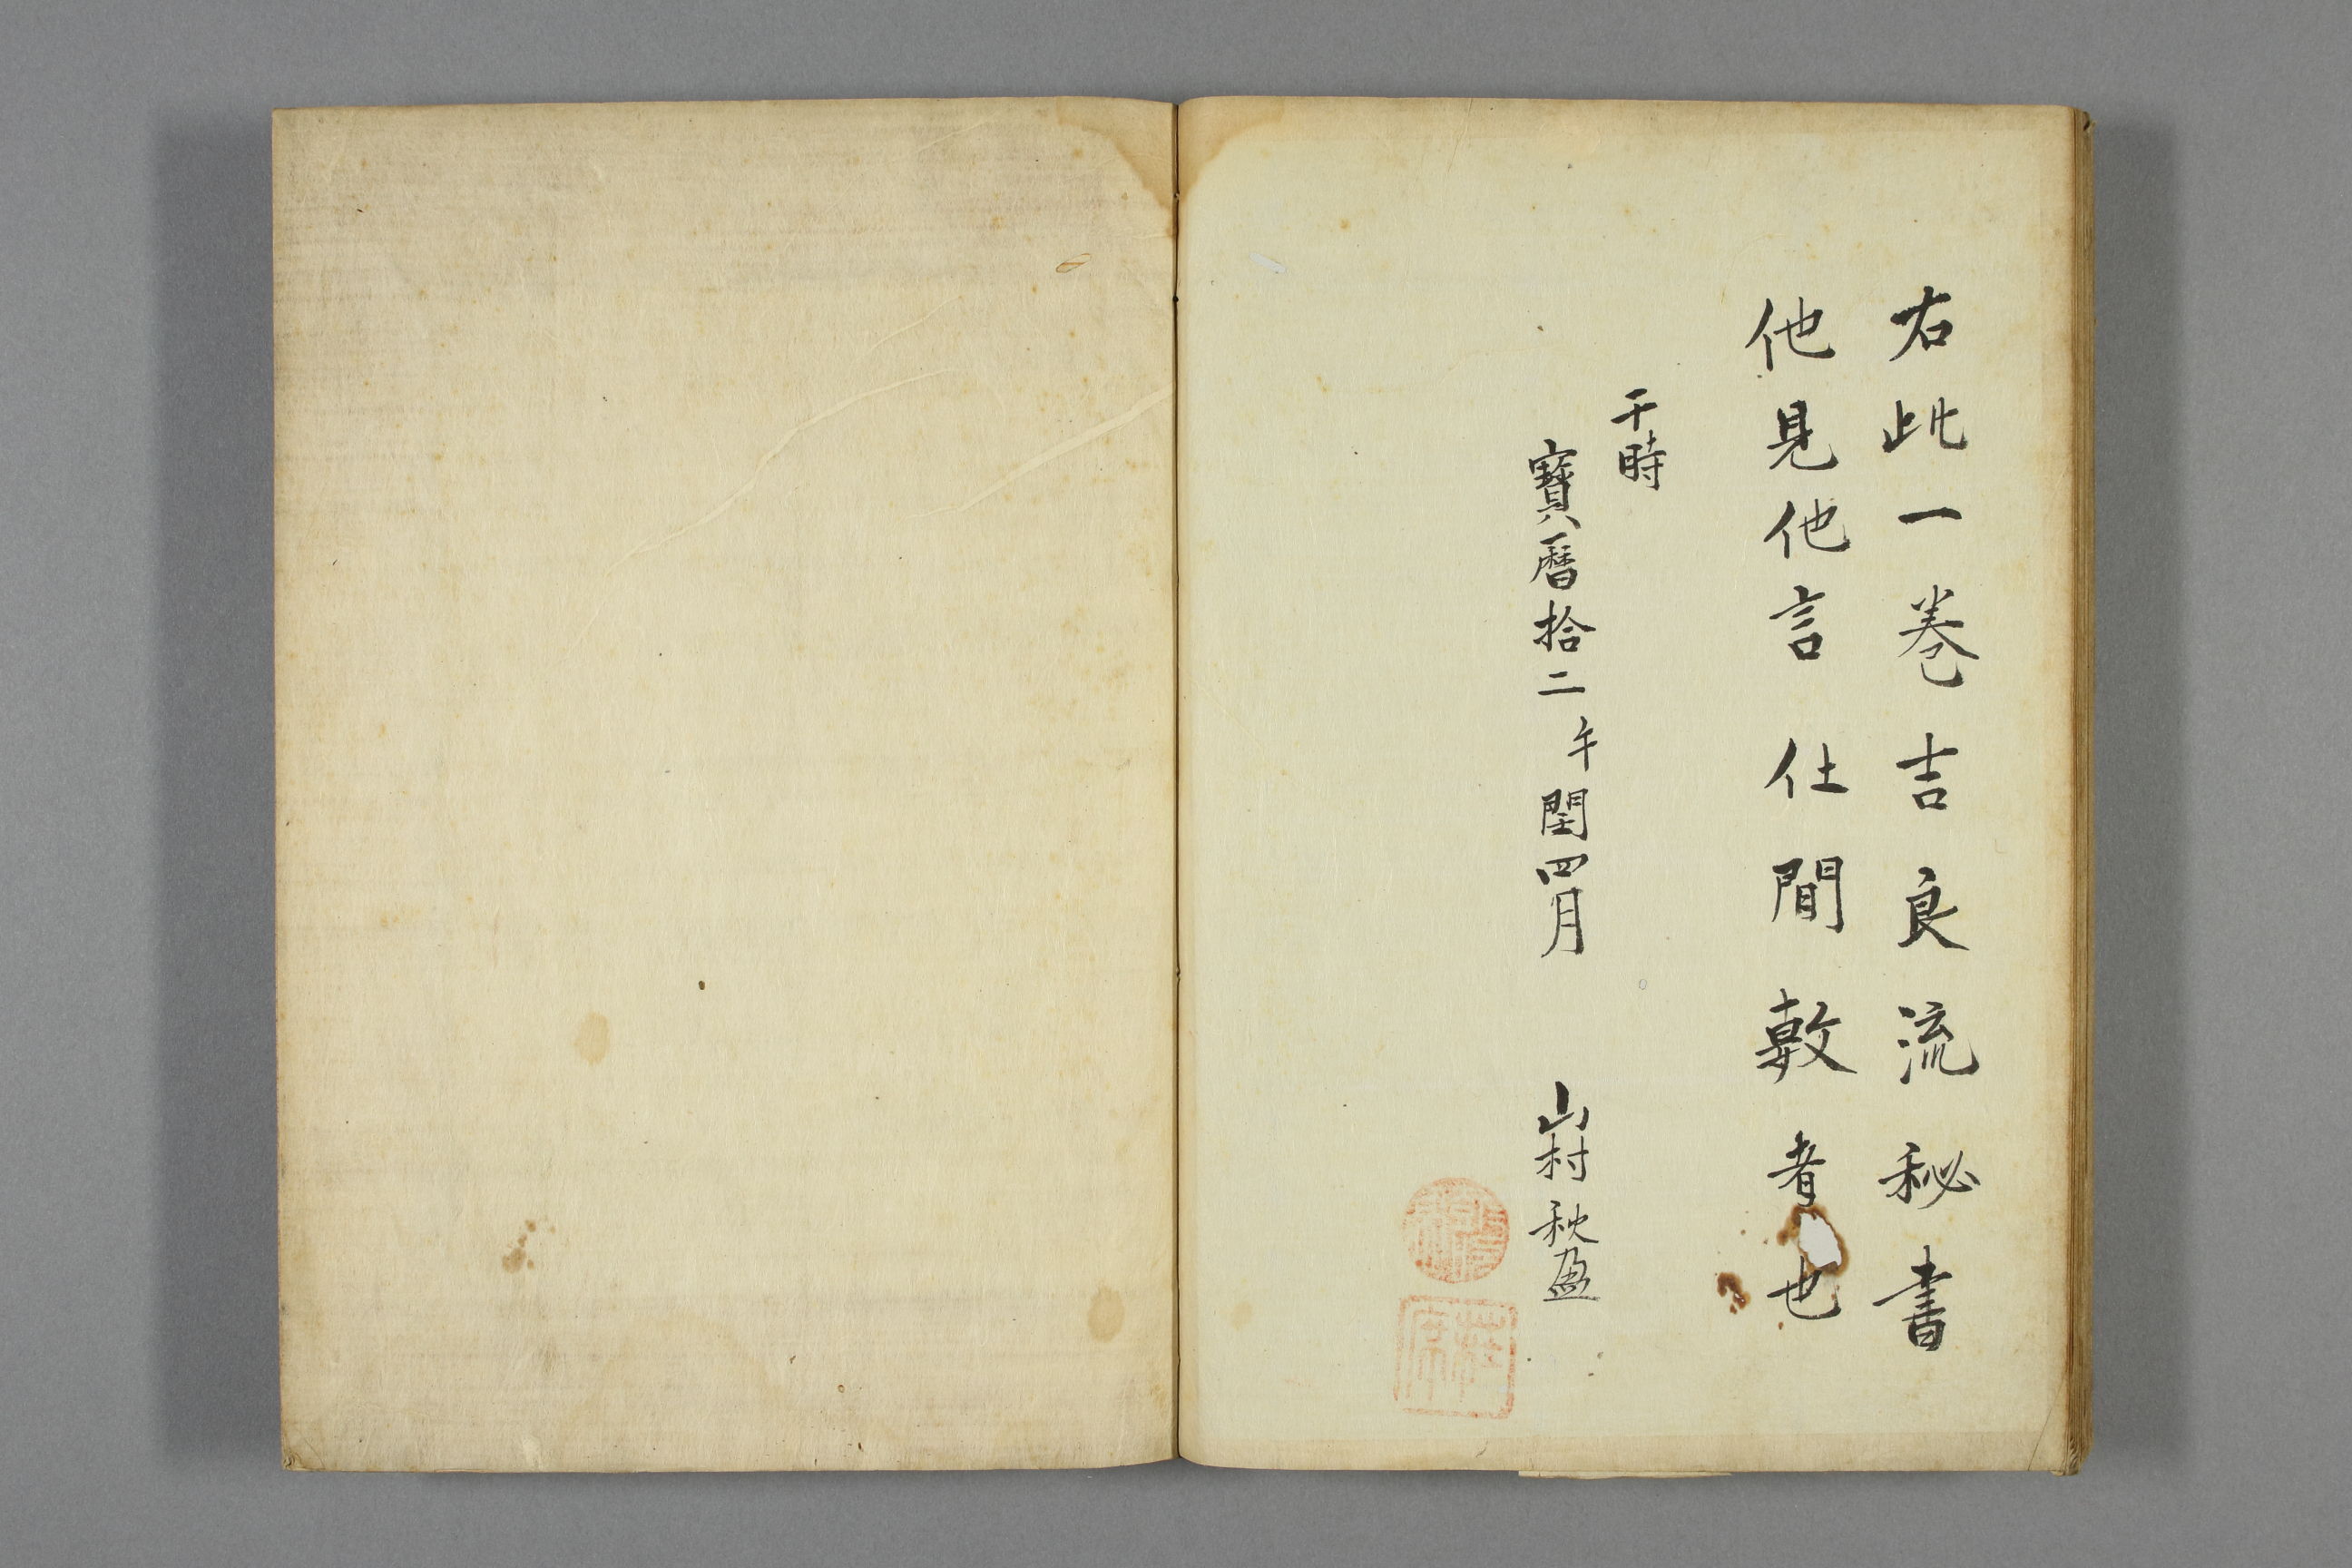 右此一巻吉良流秘書
他見他言仕間敷者也
干時
寶暦拾二午閏四月 山村秋盈